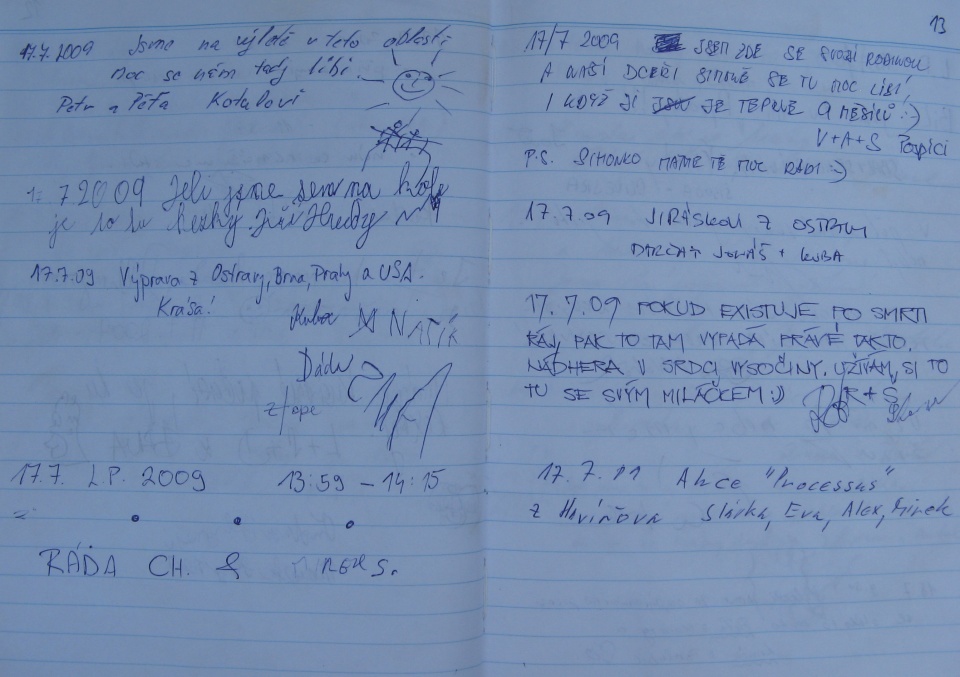 17.7.2009 Jsme na výletě v této oblasti
moc se nám tady líbí.
Petr a Péťa Kotalovi
1. 7 2009 Jeli jsme sem na kole
je to tu hezky. Jiří
17.7.09 Výprava z Ostravy, Brna, Prahy a USA.
Krása!
Kuba
NATÁK
Dádu
17.7. L.P. 2009 13:59 – 14:15
RÁĎA CH. & S.
13
17/7 2009 JSEM ZDE SE SVOJÍ RODINOU
A NAŠÍ DCEŘI SIMONĚ SE TU MOC LÍBÍ,
I KDYŽ JÍ JE TEPRVE 9 MĚSÍCŮ :-)
V+A+S Pospíci
P.S. SIMONKO MÁME TĚ MOC RÁDI :-)
17.7.09 JIRÁSKOVI Z OSTRAVY
JONÁŠ + KUBA
17.7.09 POKUD EXISTUJE PO SMRTI
RÁJ, PAK TO TAM VYPADÁ PRÁVĚ TAKTO.
NÁDHERA V SRDCI VYSOČINY. UŽÍVÁM SI TO
TU SE SVÝM MILÁČKEM :-) R+S
17.7.09 Akce "Processus"
z Havířova Slávka, Eva, Alex, Mirek